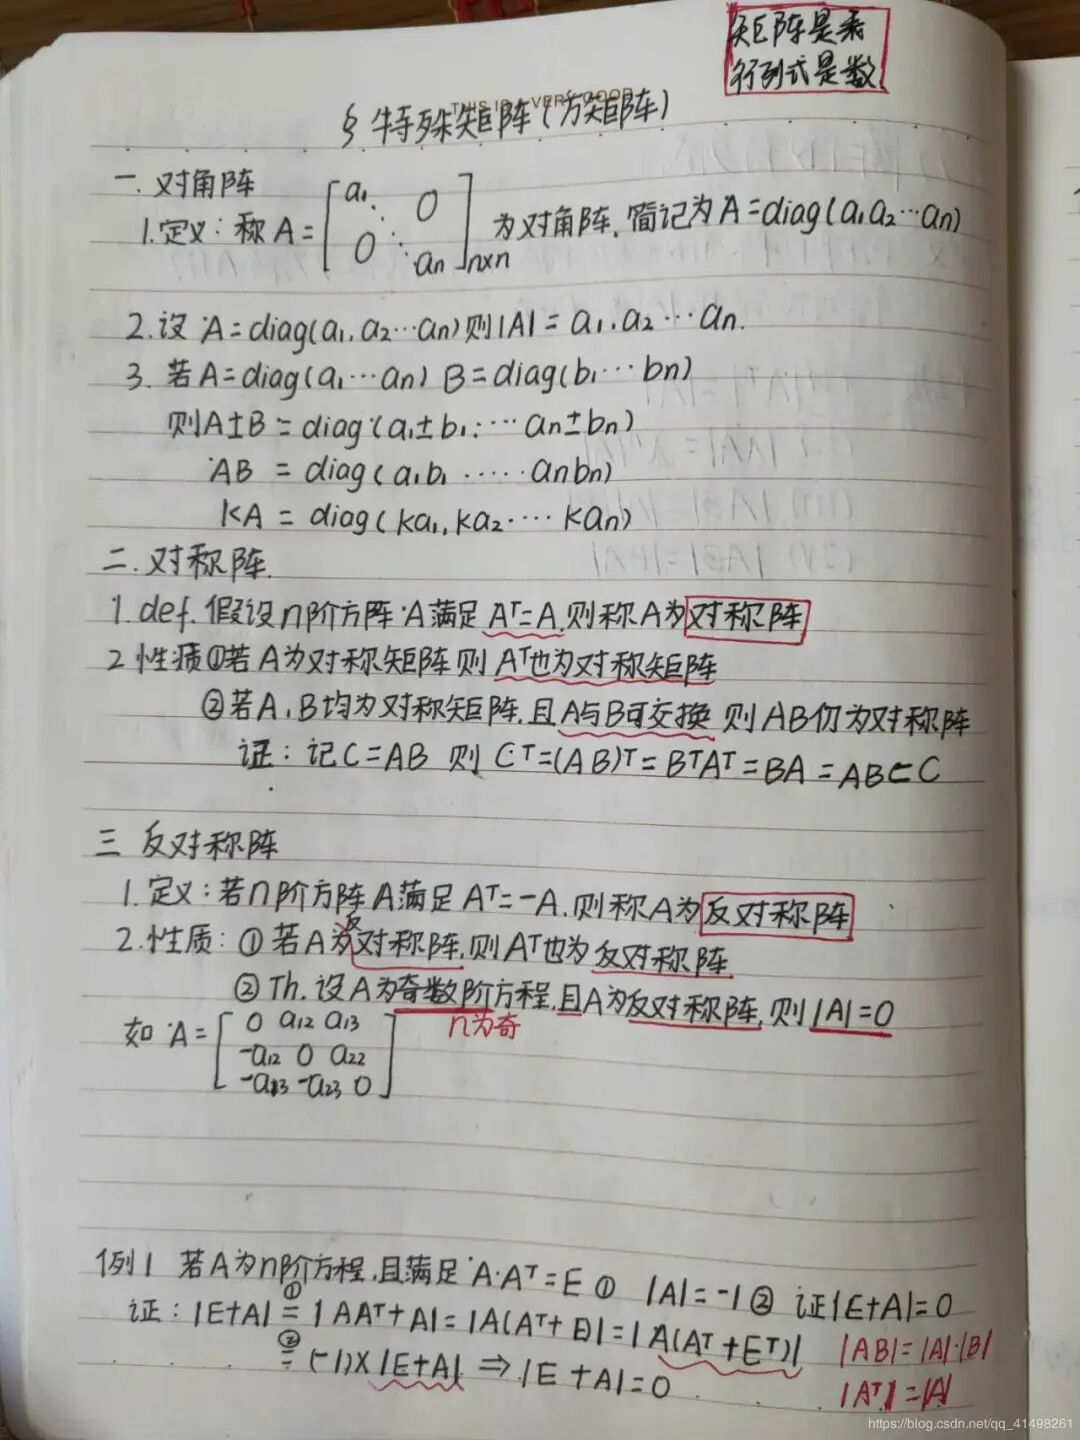 矩阵是表
行列式是数
THIS IS A VERY GOOD
§ 特殊矩阵(方矩阵)
一. 对角阵
1.定义: 称 A = [a₁ ⋱ 0 0 ⋱ aₙ]ₙₓₙ 为对角阵. 简记为 A=diag(a₁ a₂…aₙ)
2.设 A=diag(a₁.a₂…aₙ)则|A|= a₁.a₂…aₙ.
3. 若A=diag(a₁…aₙ) B=diag(b₁…bₙ)
则A±B = diag(a₁±b₁.…aₙ±bₙ)
AB = diag(a₁b₁……aₙbₙ)
KA = diag(ka₁,ka₂…kaₙ)
二. 对称阵.
1. def. 假设n阶方阵A满足 Aᵀ=A.则称A为对称阵
2 性质①若A为对称矩阵则 Aᵀ也为对称矩阵
②若A,B均为对称矩阵.且A与B可交换 则AB仍为对称阵
证: 记C=AB 则 Cᵀ=(AB)ᵀ=BᵀAᵀ=BA=AB=C
三 反对称阵
1. 定义:若n阶方阵A满足 Aᵀ=-A.则称A为反对称阵
2.性质: ①若A为反对称阵.则Aᵀ也为反对称阵
②Th. 设A为奇数阶方程.且A为反对称阵.则|A|=0
n为奇
如 A = [0 a₁₂ a₁₃
-a₁₂ 0 a₂₂
-a₁₃ -a₂₃ 0]
例1 若A为n阶方程.且满足 A·Aᵀ=E ① |A|=-1 ② 证|E+A|=0
证: |E+A| ①= |AAᵀ+A|=|A(Aᵀ+E)|=|A(Aᵀ+Eᵀ)|
|AB|=|A|·|B|
②= (-1)×|E+A| ⇒ |E+A|=0
|Aᵀ|=|A|
https://blog.csdn.net/qq_41498261